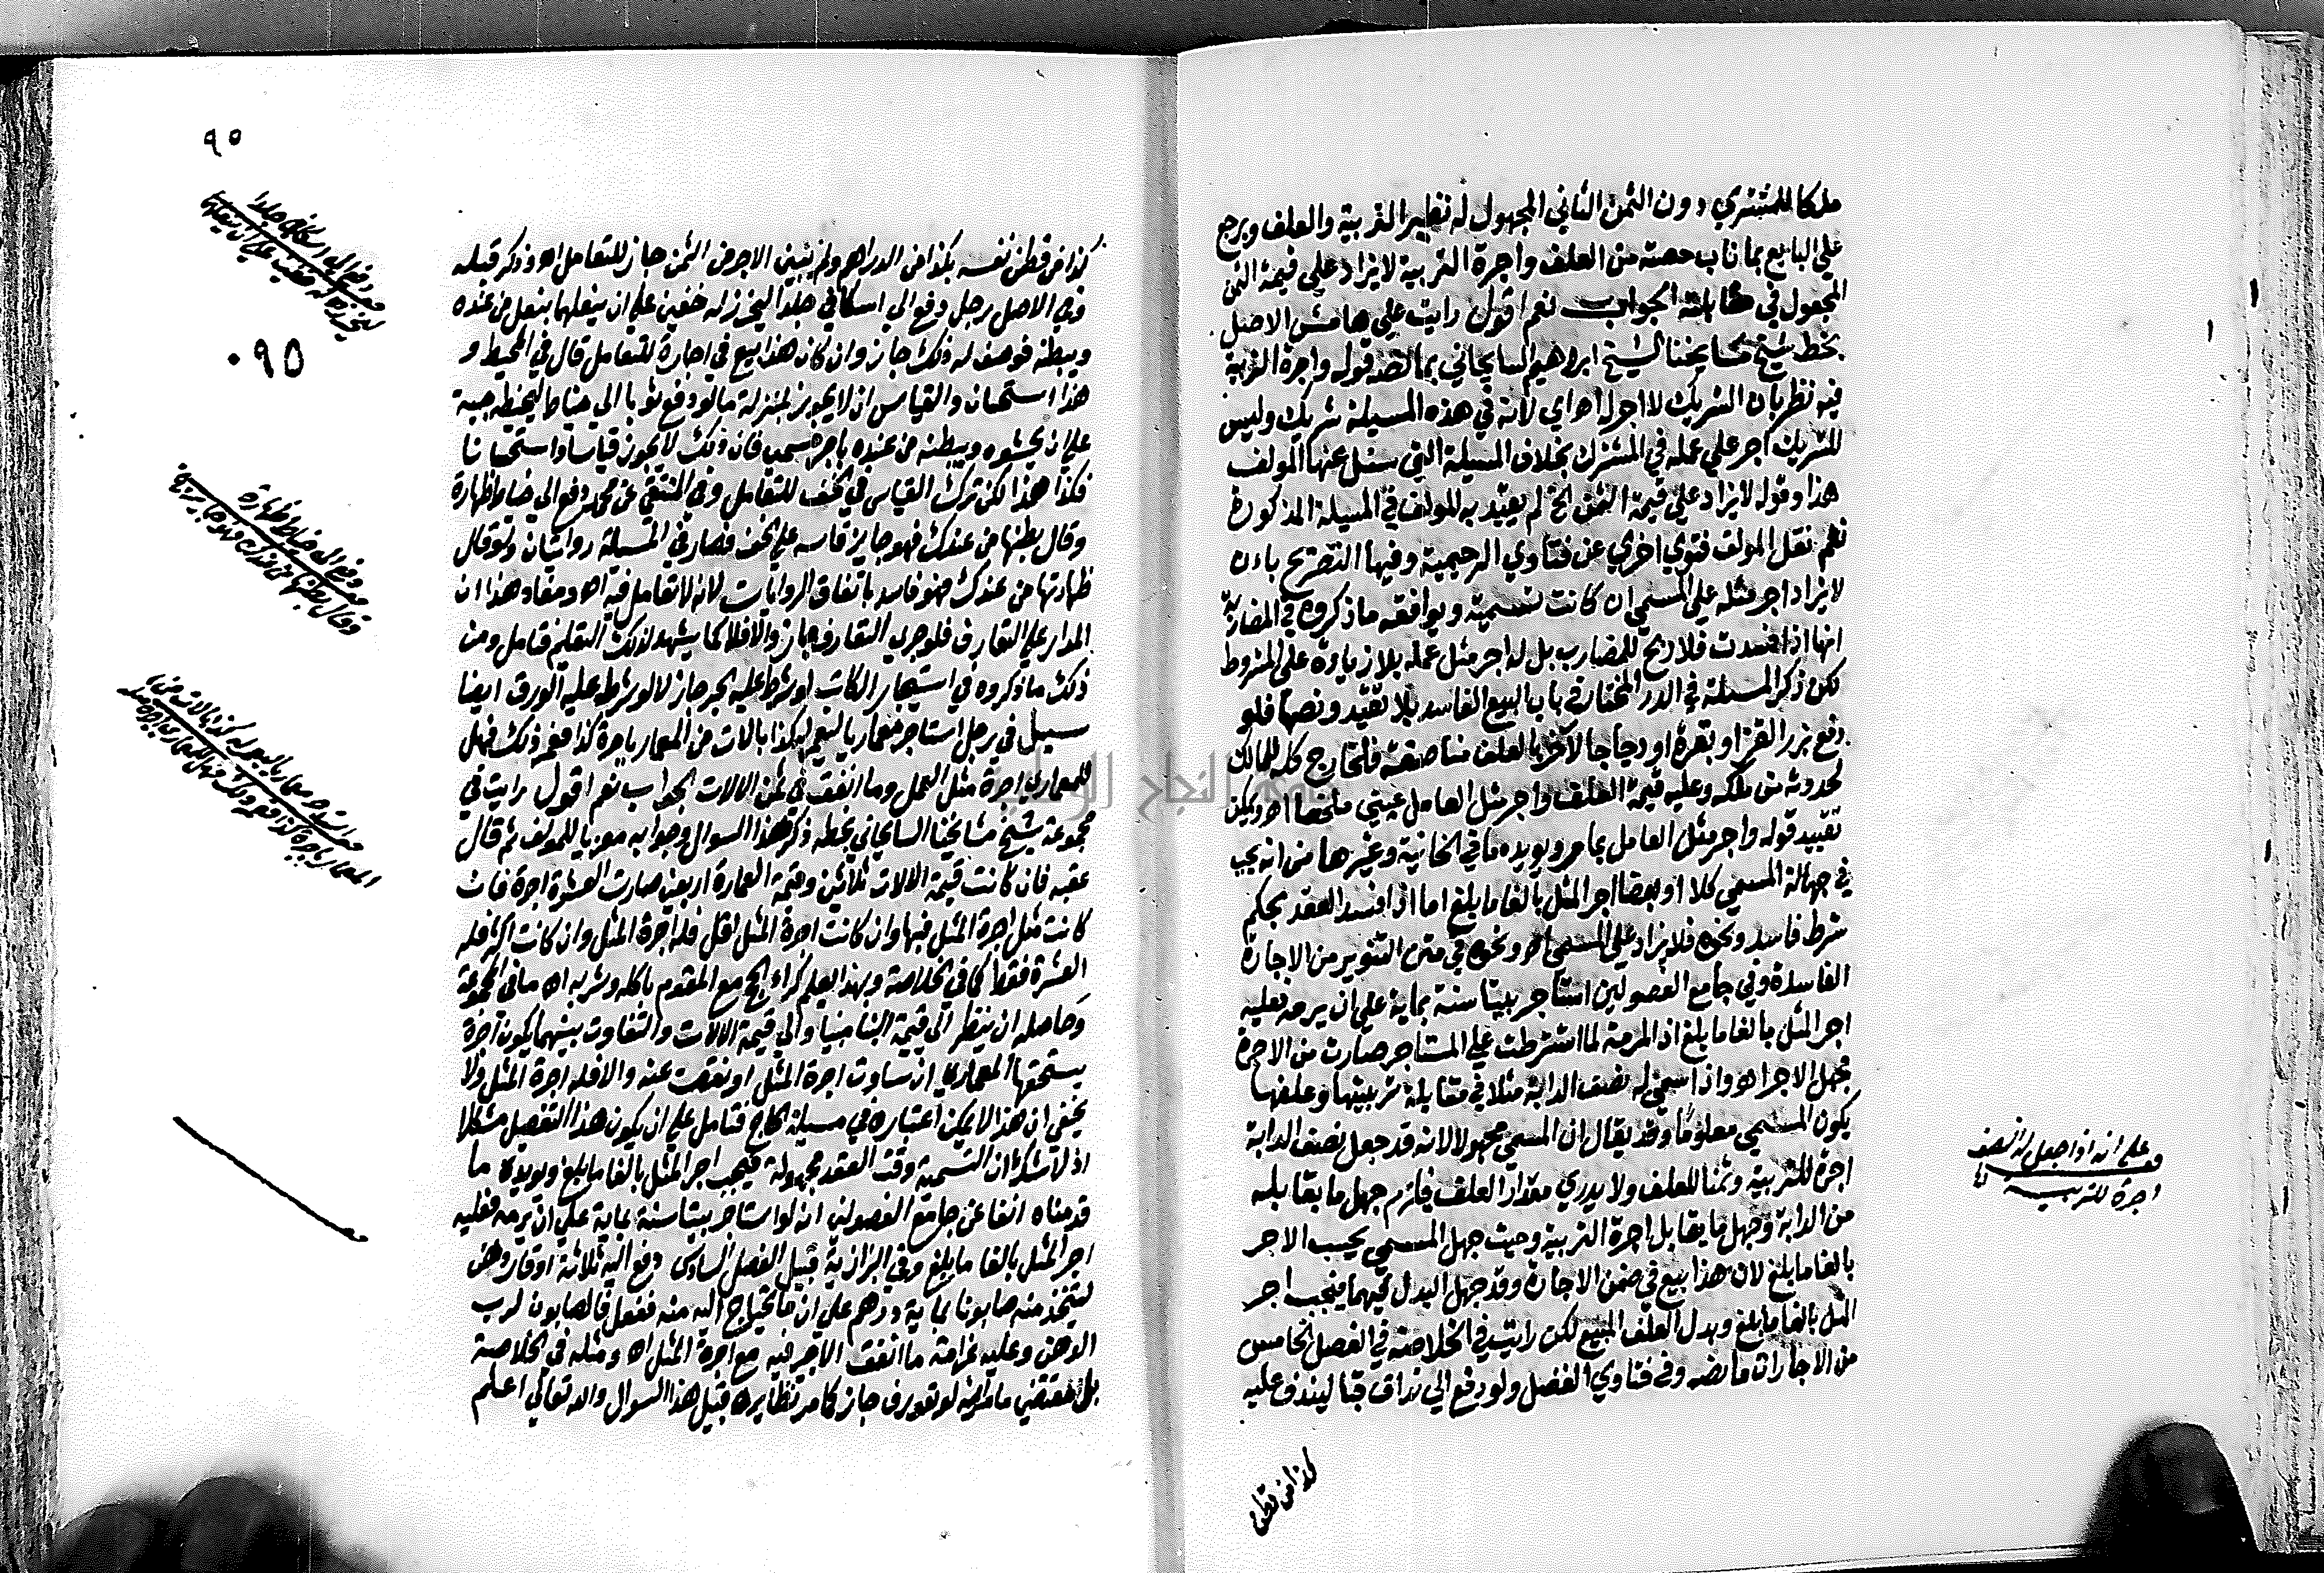 ملكا للمشتري دون الثمن الثاني المجهول له نظير التربية والعلف ويرجع
علي البايع بما ناب حصته من العلف واجرة التربية لا يزاد علي قيمة الثمن
المجعول في مقابلته الجواب نعم اقول رايت علي هامش الاصل
بخط شيخ مشايخنا الشيخ ابراهيم السايحاني بما نصه قوله واجرة التربية
فيه نظر بان الشريك لا اجر له اي لانه في هذه المسيلة شريك وليس
للشريك اجر علي عمله في المشترك بخلاف المسيلة التي سئل عنها المولف
هذا وقوله لا يزاد علي قيمة الثمن الخ لم يقيد به المولف في المسيلة المذكورة
نعم نقل المولف فتوي اخري عن فتاوي الرحيمية وفيها التصريح بان
لا يزاد اجر مثله علي المسمي ان كانت تسمية ويوافقه ما ذكروه في المضاربة
انها اذا فسدت فلا ربح للمضارب بل له اجر مثل عمله بلا زيادة علي المشروط
لكن ذكر المسيلة في الدر المختار في باب البيع الفاسد بلا تقيد ونصها فلو
دفع بزر القز او بقرة او دجاجا لآخر بالعلف مناصفة فالخارج كله للمالك
لحدوثه من ملكه وعليه قيمة العلف واجر مثل العامل عيني ملخصا اه ويمكن
تقييد قوله واجر مثل العامل بما مر ويويده ما في الخانية وغيرها من انه يجب
في جهالة المسمي كلا او بعضا اجر المثل بالغا ما بلغ اما اذا فسد العقد بحكم
شرط فاسد ونحوه فلا يزاد علي المسمي اه ونحوه في متن التنوير من الاجارة
الفاسدة وفي جامع الفصولين استاجر بيتا سنة بماية علي ان يرمه فعليه
اجر المثل بالغا ما بلغ اذ المرمة لما اشترطت علي المستاجر صارت من الاجرة
فجهل الاجر اه واذا سمي له نصف الدابة مثلا في مقابلة تربيتها وعلفها
يكون المسمي معلوما وقد يقال ان المسمي مجهولا لانه قد جعل نصف الدابة
اجرة للتربية وثمنا للعلف ولا يدري مقدار العلف فلزم جهل ما يقابله
من الدابة وجهل ما يقابل اجرة التربية وحيث جهل المسمي يجب الاجر
بالغا ما بلغ لان هذا بيع في ضمن الاجارة وقد جهل البدل فيهما فيجب اجر
المثل بالغا ما بلغ وبدل العلف المبيع لكن رايت في الخلاصة في الفصل الخامس
من الاجارات ما نصه وفي فتاوي الفضل ولو دفع الي نداف قبا ليندف عليه
كذا من قطن
وعلي انه اذا جعل له النصف
اجرة للتربية
٩٥
٠٩٥
كذا من قطن نفسه بكذا من الدراهم ولم يبين الاجر من الثمن جاز للتعامل اه وذكر قبله
وفي الاصل رجل دفع الي اسكافي جلدا ليخرز له خفين علي ان ينعلها بنعل من عنده
ويبطنه فوصف له ذلك جاز وان كان هذا بيع في اجارة للتعامل قال في المحيط و
هذا استحسان والقياس ان لا يجوز بمنزلة ما لو دفع ثوبا الي خياط ليخيطه جبة
علي ان يحشوه ويبطنه من عنده باجر مسمي فان ذلك لا يجوز قياسا واستحسانا
فكذا هذا لكن ترك القياس في الخف للتعامل وفي المنتقي عن محمد دفع الي خياط ظهارة
وقال بطنها من عندك فهو جايز قاسه علي الخف فصار في المسيلة روايتان ولو قال
ظهارتها من عندك فهو فاسد باتفاق الروايات لانه لا تعامل فيه اه ومفاد هذا ان
المدار علي التعارف فلو جري التعارف جاز والا فلا كما يشهد لذلك التعليل فتامل ومن
ذلك ما ذكروه في استيجار الكاتب لو شرط عليه الحبر جاز لا لو شرط عليه الورق ايضا
سيل في رجل استاجر معماريا ليعمر له كذا بالات من المعمار باجرة كذا فعمر ذلك فهل
للمعماري اجرة مثل العمل وما انفق في ثمن الالات الجواب نعم اقول رايت في
مجموعة شيخ مشايخنا السايحاني بخطه ذكر هذا السوال وجوابه معزيا للمولف ثم قال
عقبه فان كانت قيمة الالات ثلاثين وقيمة العمارة اربعين صارت العشرة اجرة فان
كانت مثل اجرة المثل فبها وان كانت اجرة المثل اقل فله اجرة المثل وان كانت اكثر فله
العشرة فقط كما في الخلاصة وبهذا يعلم كراء الحج مع المقدم باكله وشربه اه ما في المجموعة
وحاصله ان ينظر الي قيمة البنا مبنيا والي قيمة الالات والتفاوت بينهما يكون اجرة
يستحقها المعماري ان ساوت اجرة المثل او نقصت عنه والا فله اجرة المثل ولا
يخفي ان هذا لا يمكن اعتباره في مسيلة الحاج فتامل علي ان يكون هذا التفصيل مشكلا
اذ لا شك ان التسمية وقت العقد مجهولة فيجب اجر المثل بالغا ما بلغ ويويده ما
قدمناه انفا عن جامع الفصولين انه لو استاجر بيتا سنة بماية علي ان يرمه فعليه
اجر المثل بالغا ما بلغ وفي البزازية قبيل الفصل السادس دفع اليه ثلاثة اوقار دهن
ليتخذ منه صابونا بماية درهم علي ان ما يحتاج اليه منه ففعل فالصابون لرب
الدهن وعليه غرامة ما انفق الاجير فيه مع اجرة المثل اه ومثله في الخلاصة
بل مقتضي ما مر انه لو تعورف جاز كما مر نظايره قبيل هذا السوال والله تعالي اعلم
دفع الي اسكافي جلدا
ليخرز له خفين علي ان ينعلها
دفع الي خياط ظهارة
وقال بطنها من عندك فهو جايز
استاجر معماريا ليعمر له كذا بالات من
المعمار باجرة كذا فعمر ذلك فهل للمعماري اجرة مثله
جامعة النجاح الوطنية